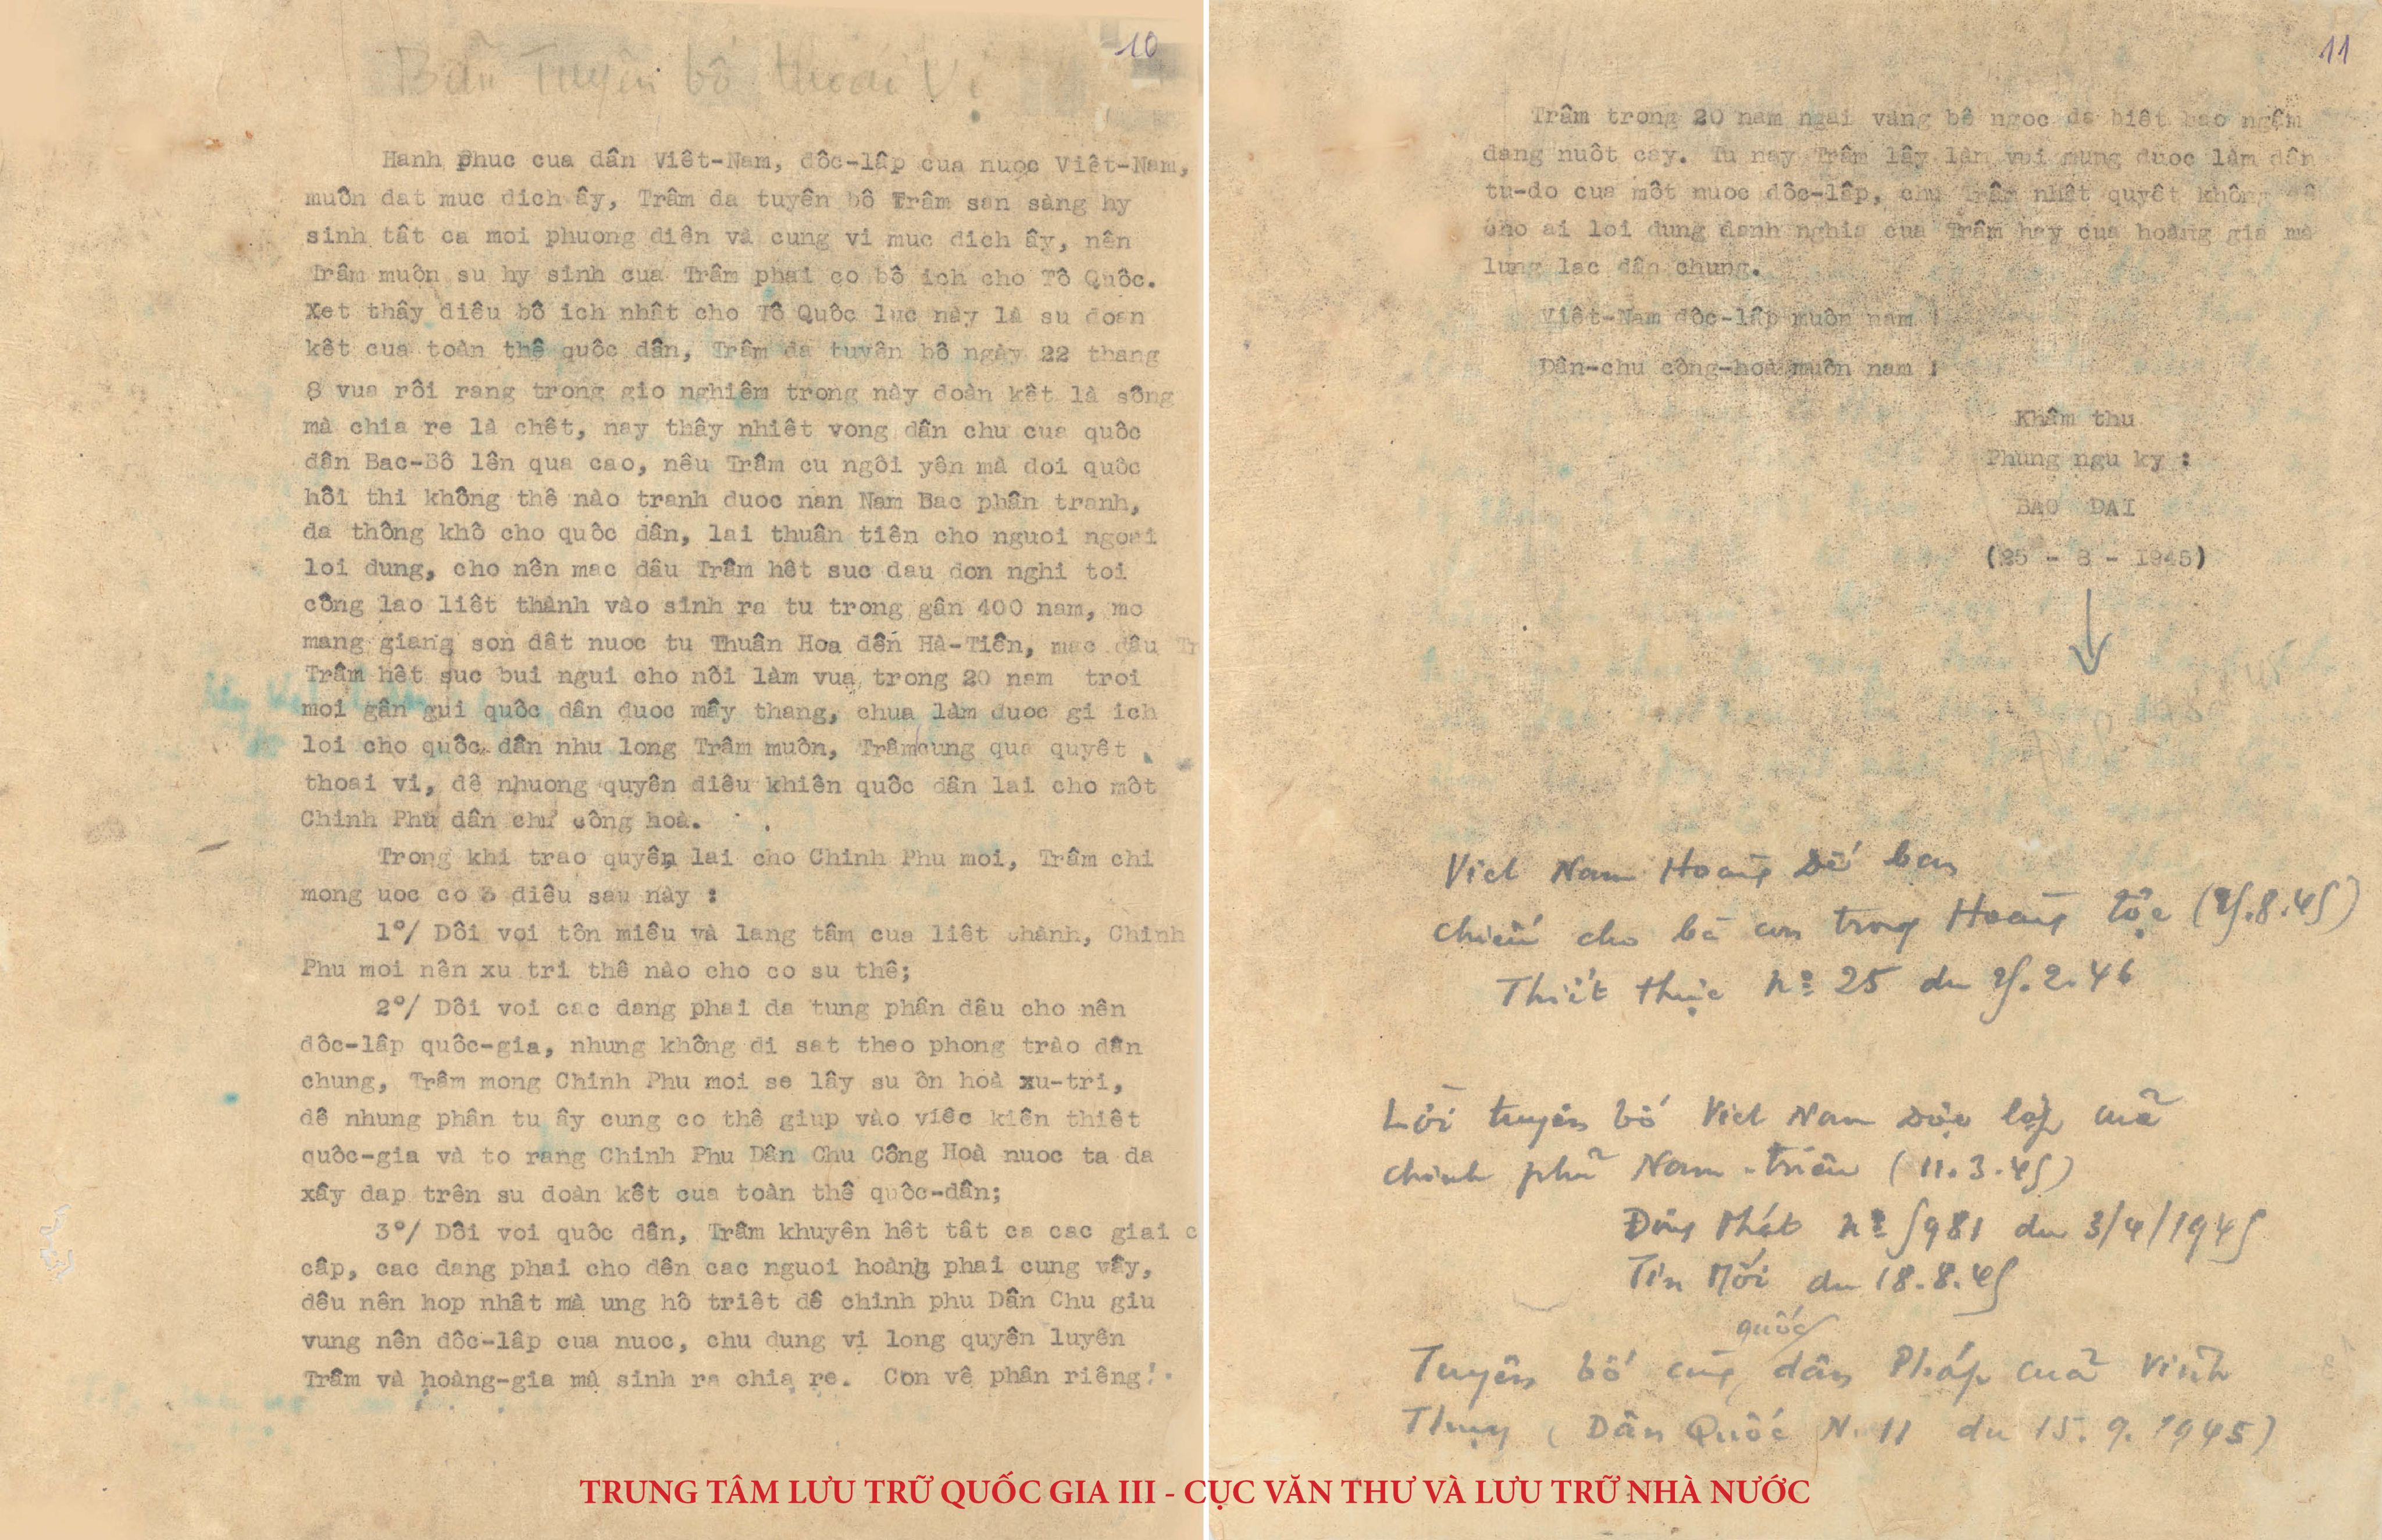 10
Bản Tuyên bố thoái Vị
Hanh phuc cua dân Viêt-Nam, dôc-lâp cua nuoc Viêt-Nam,
muôn dat muc dich ây, Trâm da tuyên bô Trâm san sàng hy
sinh tât ca moi phuong diên và cung vi muc dich ây, nên
Trâm muôn su hy sinh cua Trâm phai co bô ich cho Tô Quôc.
Xet thây diêu bô ich nhât cho Tô Quôc luc này là su doan
kêt cua toàn thê quôc dân, Trâm da tuyên bô ngày 22 thang
8 vua rôi rang trong gio nghiêm trong này doàn kêt là sông
mà chia re là chêt, nay thây nhiêt vong dân chu cua quôc
dân Bac-Bô lên qua cao, nêu Trâm cu ngôi yên mà doi quôc
hôi thi không thê nào tranh duoc nan Nam Bac phân tranh,
da thông khô cho quôc dân, lai thuân tiên cho nguoi ngoai
loi dung, cho nên mac dâu Trâm hêt suc dau don nghi toi
công lao liêt thành vào sinh ra tu trong gân 400 nam, mo
mang giang son dât nuoc tu Thuân Hoa dến Hà-Tiên, mac dâu Tr
Trâm hêt suc bui ngui cho nôi làm vua trong 20 nam troi
moi gân gui quôc dân duoc mây thang, chua làm duoc gi ich
loi cho quôc dân nhu long Trâm muôn, Trâmcung qua quyêt
thoai vi, dê nhuong quyên diêu khiên quôc dân lai cho môt
Chinh Phu dân chu công hoà.
Trong khi trao quyên lai cho Chinh Phu moi, Trâm chi
mong uoc co 3 diêu sau này :
1°/ Dôi voi tôn miêu và lang tâm cua liêt thành, Chinh
Phu moi nên xu tri thê nào cho co su thê;
2°/ Dôi voi cac dang phai da tung phân dâu cho nên
dôc-lâp quôc-gia, nhung không di sat theo phong trào dân
chung, Trâm mong Chinh Phu moi se lây su ôn hoà xu-tri,
dê nhung phân tu ây cung co thê giup vào viêc kiên thiêt
quôc-gia và to rang Chinh Phu Dân Chu Công Hoà nuoc ta da
xây dap trên su doàn kêt cua toàn thê quôc-dân;
3°/ Dôi voi quôc dân, Trâm khuyên hêt tât ca cac giai c
câp, cac dang phai cho dên cac nguoi hoàng phai cung vây,
dêu nên hop nhât mà ung hô triêt dê chinh phu Dân Chu giu
vung nên dôc-lâp cua nuoc, chu dung vi long quyên luyên
Trâm và hoàng-gia mà sinh ra chia re. Con vê phân riêng!
11
Trâm trong 20 nam ngai vàng bê ngoc da biêt bao ngâm
dang nuôt cay. Tu nay Trâm lây làm vui mung duoc làm dân
tu-do cua môt nuoc dôc-lâp, chu Trâm nhât quyêt không dê
cho ai loi dung danh nghia cua Trâm hay cua hoàng gia mà
lung lac dân chung.
Viêt-Nam dôc-lâp muôn nam !
Dân-chu công-hoà muôn nam !
Khâm thu
Phung ngu ky :
BAO DAI
(25 - 8 - 1945)
Việt Nam Hoàng Đế ban
chiếu cho bà con trong Hoàng tộc (25.8.45)
Thiết thực nº 25 du 25.2.46
Lời tuyên bố Việt Nam độc lập của
chính phủ Nam-triều (11.3.45)
Đông Pháp nº 5981 du 3/4/1945
Tin Mới du 18.8.45
quốc
Tuyên bố cùng dân Pháp của Vĩnh
Thụy (Dân Quốc N. 11 du 15.9.1945)
TRUNG TÂM LƯU TRỮ QUỐC GIA III - CỤC VĂN THƯ VÀ LƯU TRỮ NHÀ NƯỚC